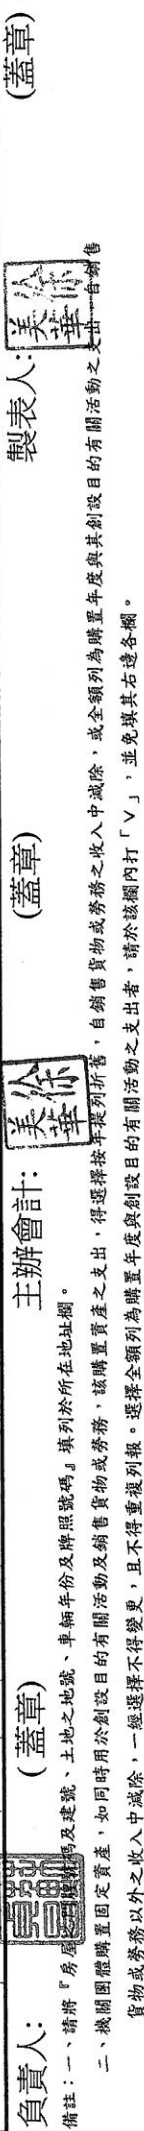 負責人: (蓋章) 主辦會計: 徐美華 (蓋章) 製表人: 徐美華 (蓋章)
備註：一、請將『房屋之門牌號碼及建號、土地之地號、車輛年份及牌照號碼』填列於所在地址欄。
二、機關團體購置固定資產，如同時用於創設目的有關活動及銷售貨物或勞務，該購置資產之支出，得選擇按年提列折舊，自銷售貨物或勞務之收入中減除，或全額列為購置年度與其創設目的有關活動之支出，自銷售
貨物或勞務以外之收入中減除，一經選擇不得變更，且不得重複列報。選擇全額列為購置年度與創設目的有關活動之支出者，請於該欄內打「V」，並免填其右邊各欄。